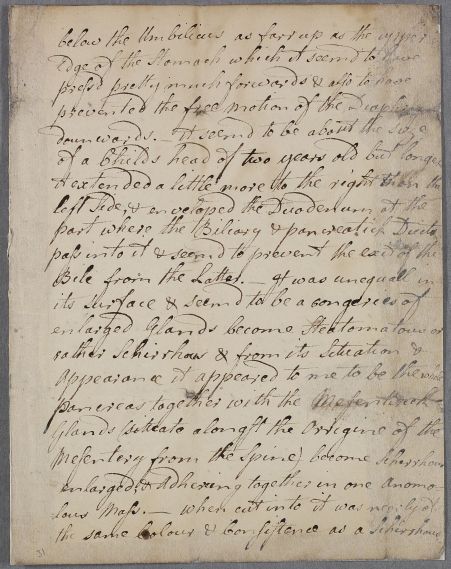 below the Umbilicus as farr up as the upper
Edge of the Stomach which it seemd to have
press'd pretty much forwards & also to have
prevented the free motion of the Diaphragm
downwards. — It seemd to be about the size
of a Childs head of two years old but longer
It extended a little more to the right than the
left Side, & enveloped the Duodenum at the
part where the Biliary & pancreatick Ducts
pass into it & seemd to prevent the exit of the
Bile from the Latter. — It was unequall in
its surface & seemd to be a congeries of
enlarged Glands become Steatomatous or
rather Schirrhous & from its Situation &
Appearance it appeared to me to be the whole
pancreas together with the Mesenterick
Glands (situate alongst the Origine of the
Mesentery from the Spine) become Schirrhous
enlarged, & adhering together in one anoma-
lous Mass. — when cut into it was nearly of
the same Colour & Consistence as a Schirrhous
31